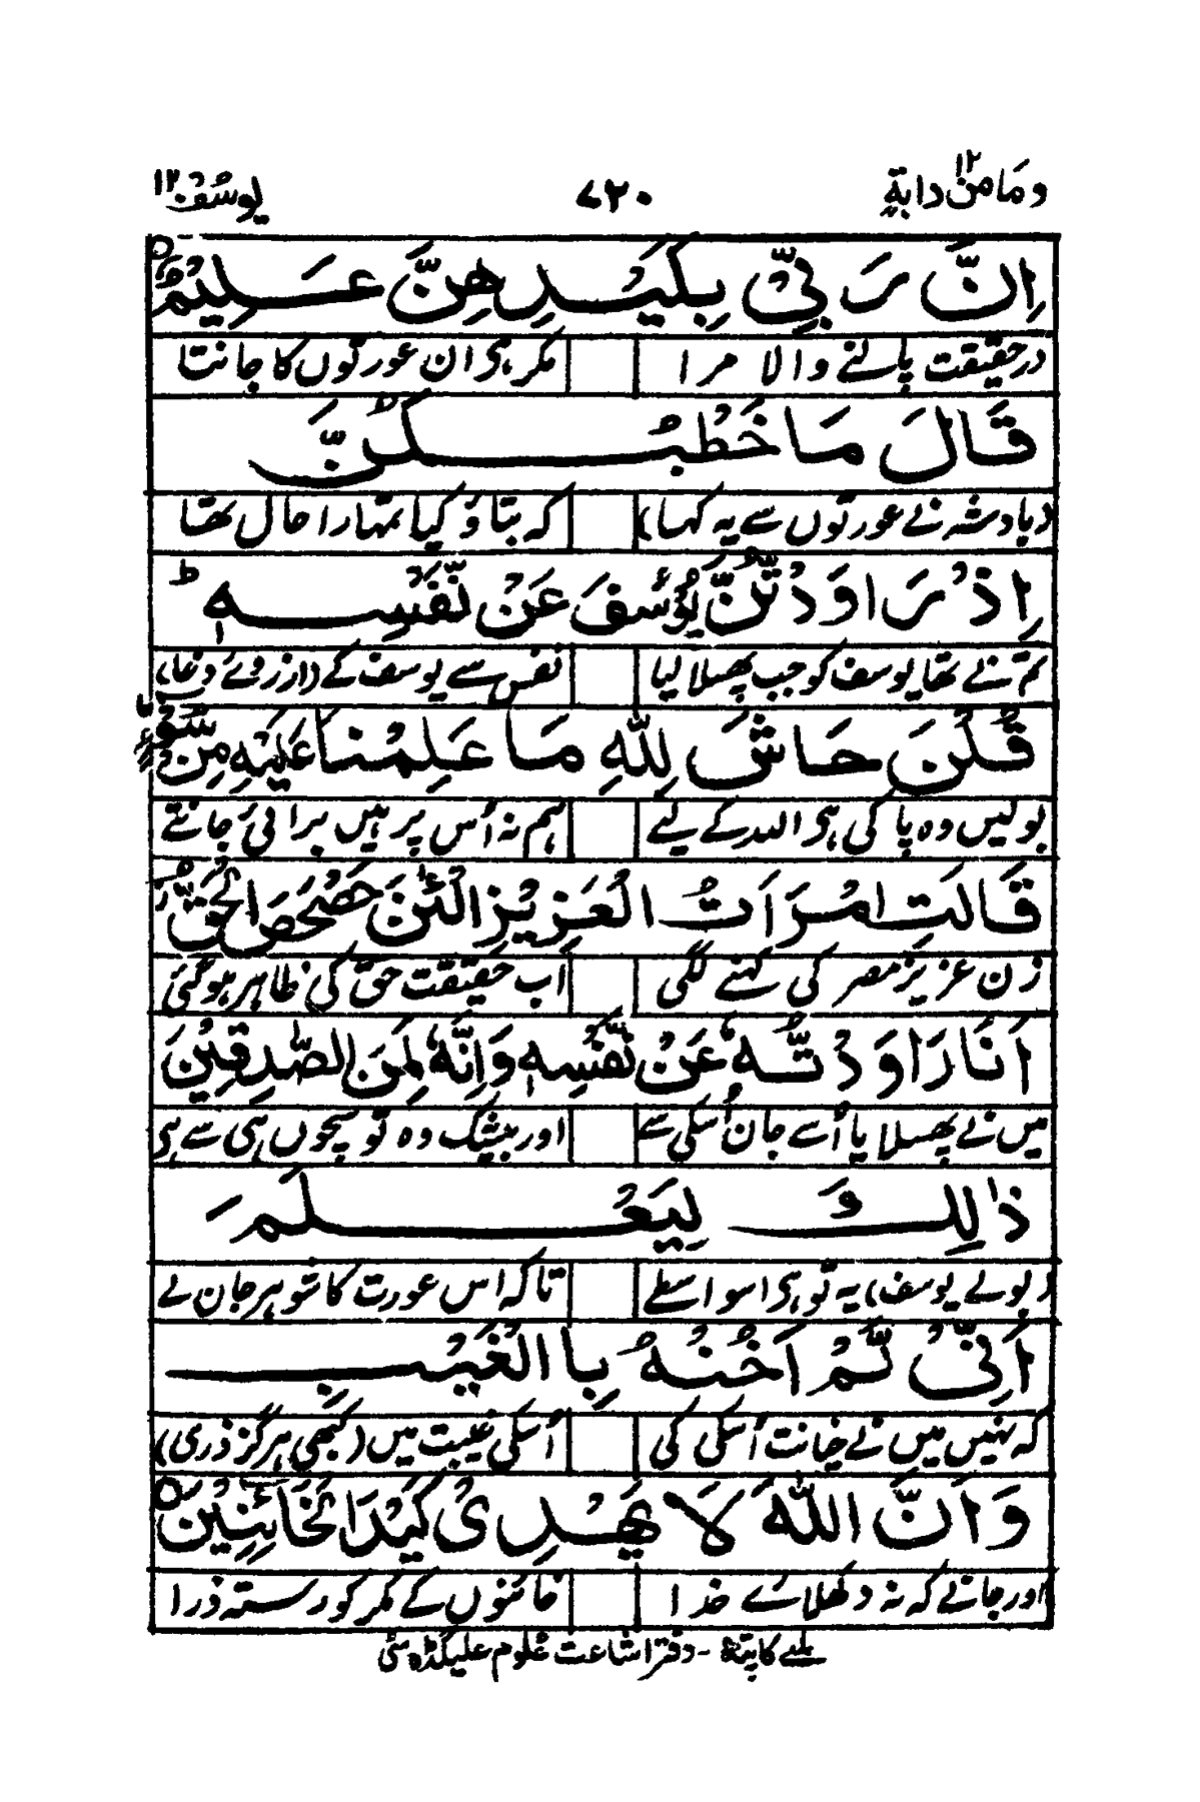 ومامن دابة ١٢ ٧٢٠ يوسف ١٢
اِنَّ رَبِّیْ بِكَیْدِهِنَّ عَلِیْمٌ
درحقیقت پالنے والا مرا مکر ہی ان عورتوں کا جانتا
قَالَ مَا خَطْبُكُنَّ
(بادشہ نے عورتوں سے یہ کہا) کہ بتاؤ کیا تمہارا حال تھا
اِذْ رَاوَدْتُّنَّ یُوْسُفَ عَنْ نَّفْسِهٖ ؕ
تم نے تھا یوسف کو جب پھسلا لیا نفس سے یوسف کے (ازروئے دغا)
قُلْنَ حَاشَ لِلّٰهِ مَا عَلِمْنَا عَلَیْهِ مِنْ سُوْٓءٍ
بولیں وہ پاکی ہی اللہ کے لیے ہم نہ اُس پر ہیں برائی جانتے
قَالَتِ امْرَاَتُ الْعَزِیْزِ الْـٰٔنَ حَصْحَصَ الْحَقُّ
زن عزیز مصر کی کہنے لگی اب حقیقت حق کی ظاہر ہوگئی
اَنَا رَاوَدْتُّهٗ عَنْ نَّفْسِهٖ وَاِنَّهٗ لَمِنَ الصّٰدِقِیْنَ
میں نے پھسلایا اُسے جان اُسکی سے اور بیشک وہ تو سچوں ہی سے ہی
ذٰلِكَ لِیَعْلَمَ
(بولے یوسف) یہ تو ہی اسواسطے تاکہ اس عورت کا شوہر جان لے
اَنِّیْ لَمْ اَخُنْهُ بِالْغَیْبِ
کہ نہیں میں نے خیانت اُسکی کی اُسکی غیبت میں (کبھی ہرگز ذری)
وَاَنَّ اللّٰهَ لَا یَهْدِیْ كَیْدَ الْخَآئِنِیْنَ
اور جانے کہ نہ دکھلائے خدا خائنوں کے مکر کو رستہ ذرا
ملنے کا پتہ - دفتر اشاعت علوم علیگڈہ سٹی